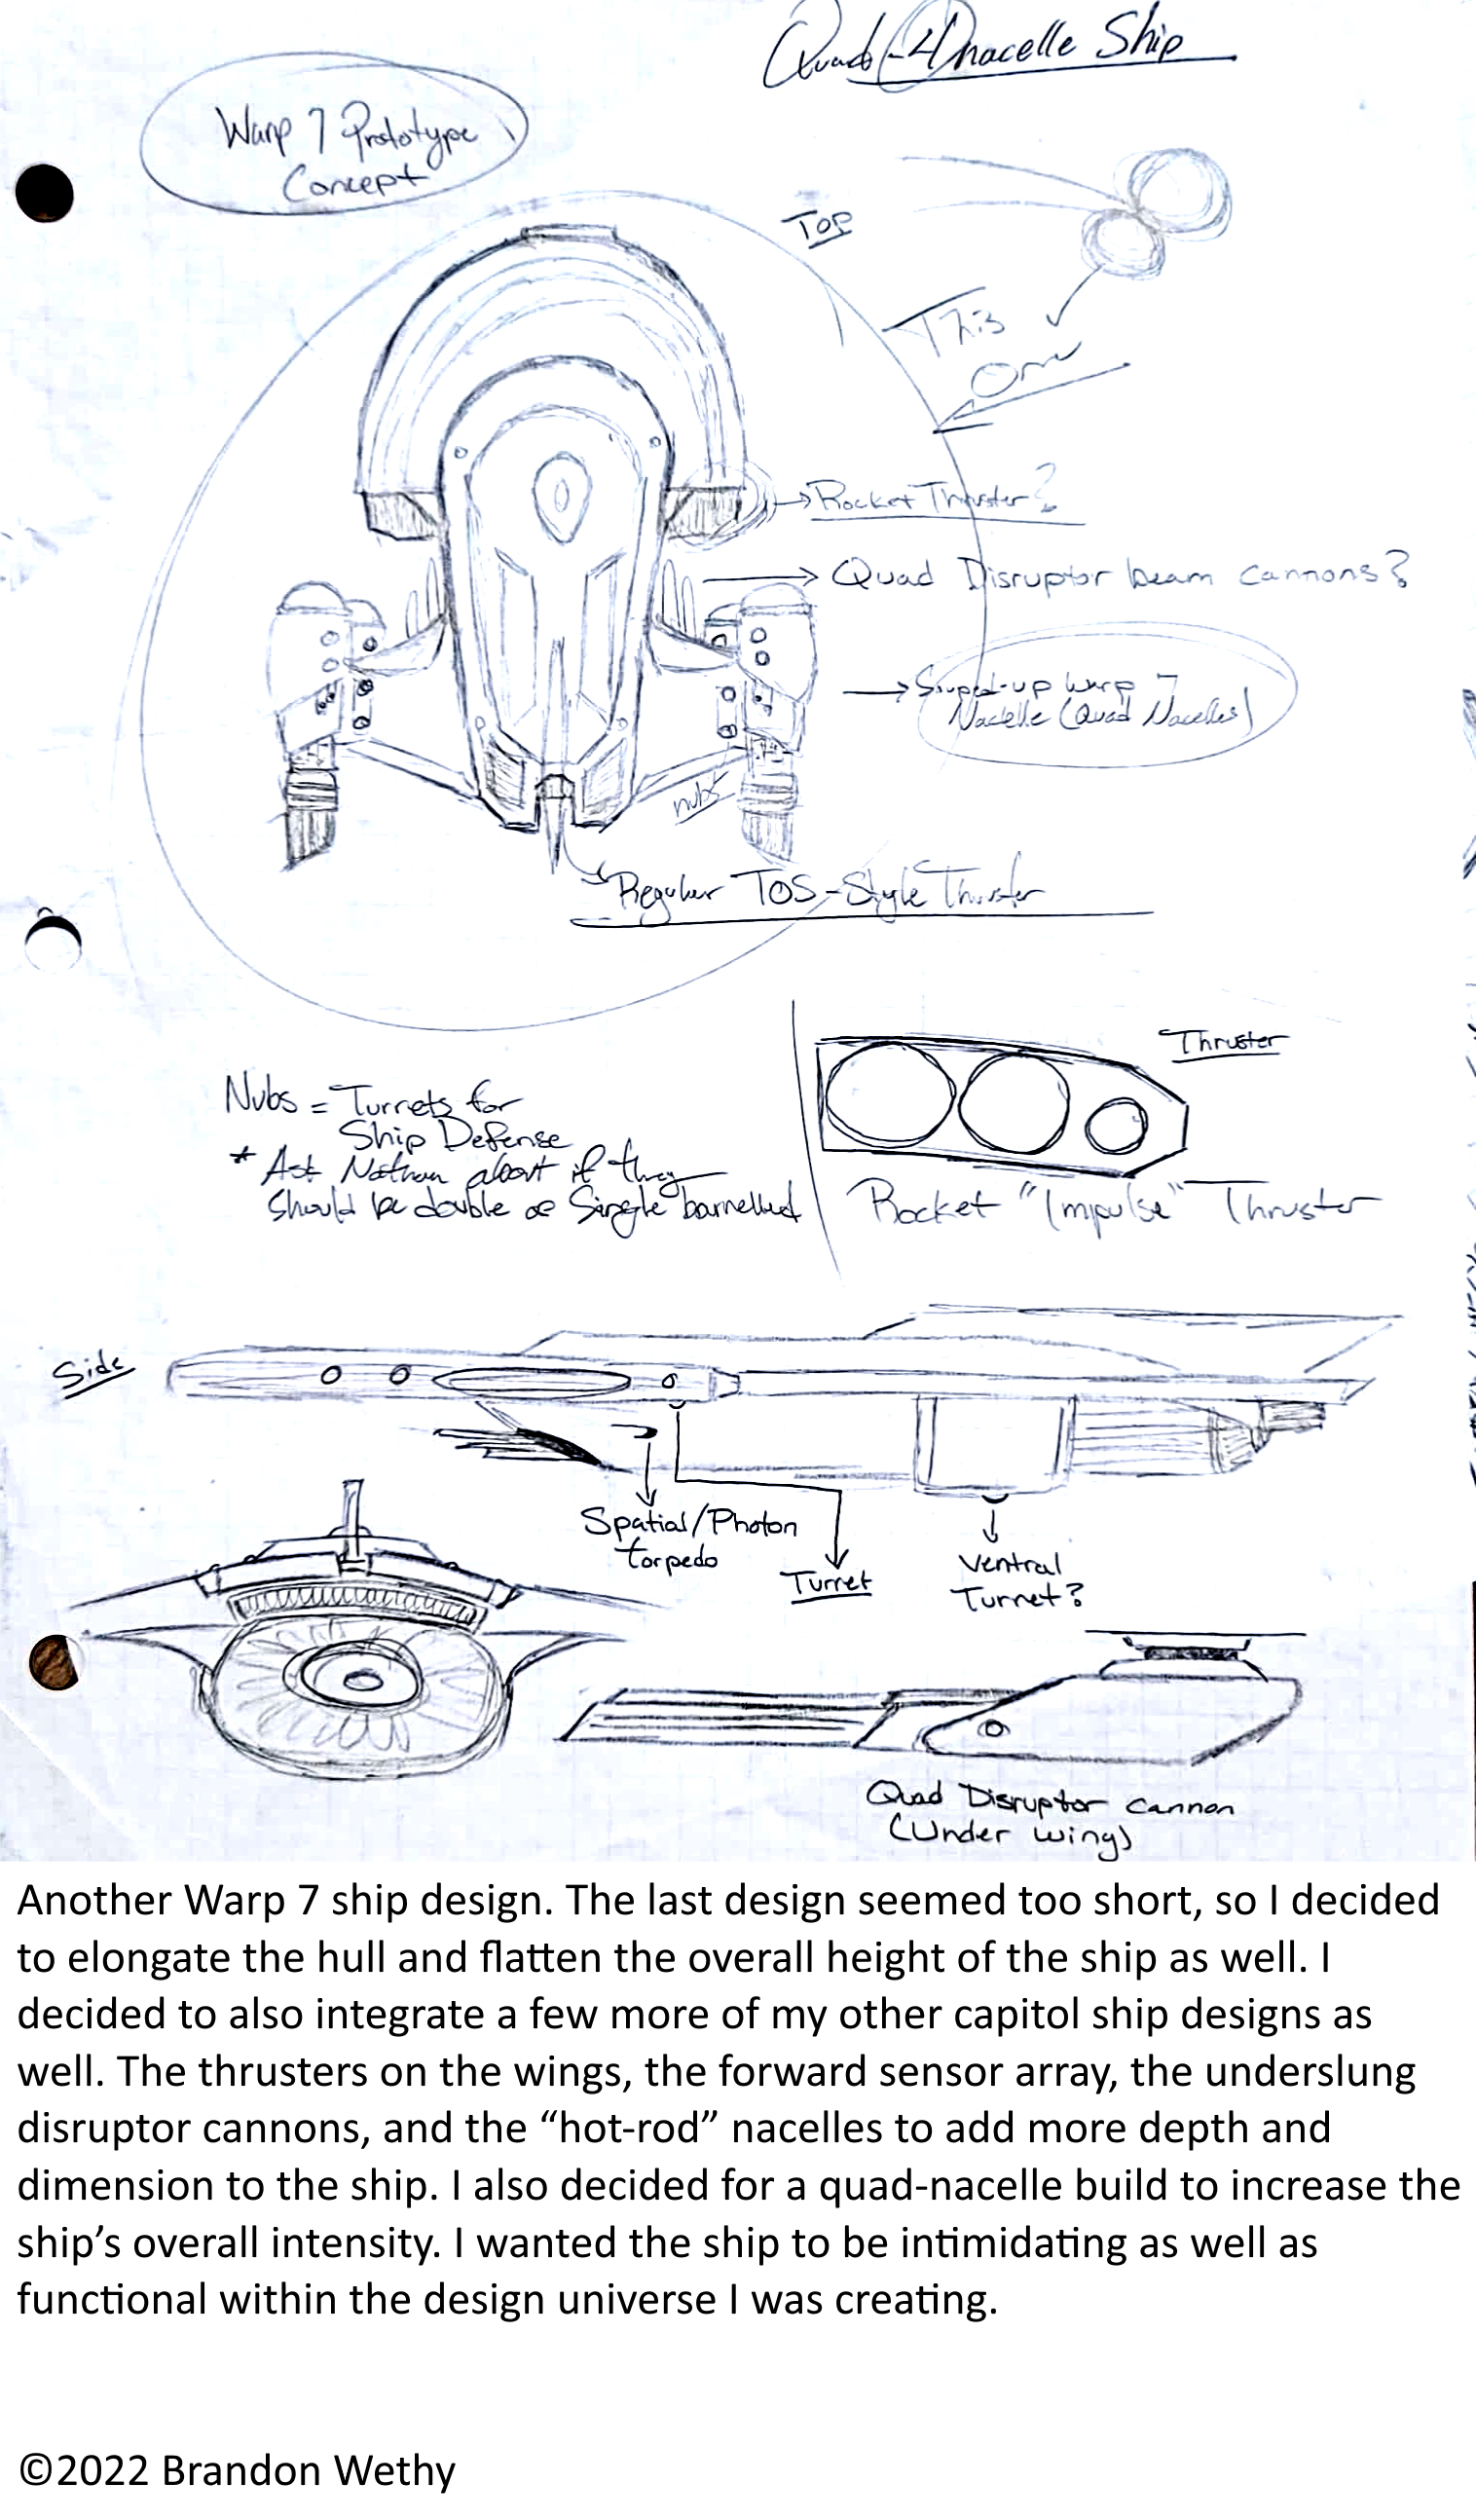 Quad (-4) nacelle Ship
Warp 7 Prototype
Concept
Top
This
One
Rocket Thruster?
Quad Disruptor beam cannons?
Souped-up Warp 7
Nacelle (Quad Nacelles)
nubs
Regular TOS-Style Thruster
Thruster
Nubs = Turrets for
Ship Defense
* Ask Nathan about if they
should be double or Single barrelled
Rocket "Impulse" Thruster
Side
Spatial/Photon
torpedo
Turret
Ventral
Turret?
Quad Disruptor cannon
(Under wing)
Another Warp 7 ship design. The last design seemed too short, so I decided
to elongate the hull and flatten the overall height of the ship as well. I
decided to also integrate a few more of my other capitol ship designs as
well. The thrusters on the wings, the forward sensor array, the underslung
disruptor cannons, and the “hot-rod” nacelles to add more depth and
dimension to the ship. I also decided for a quad-nacelle build to increase the
ship’s overall intensity. I wanted the ship to be intimidating as well as
functional within the design universe I was creating.
©2022 Brandon Wethy